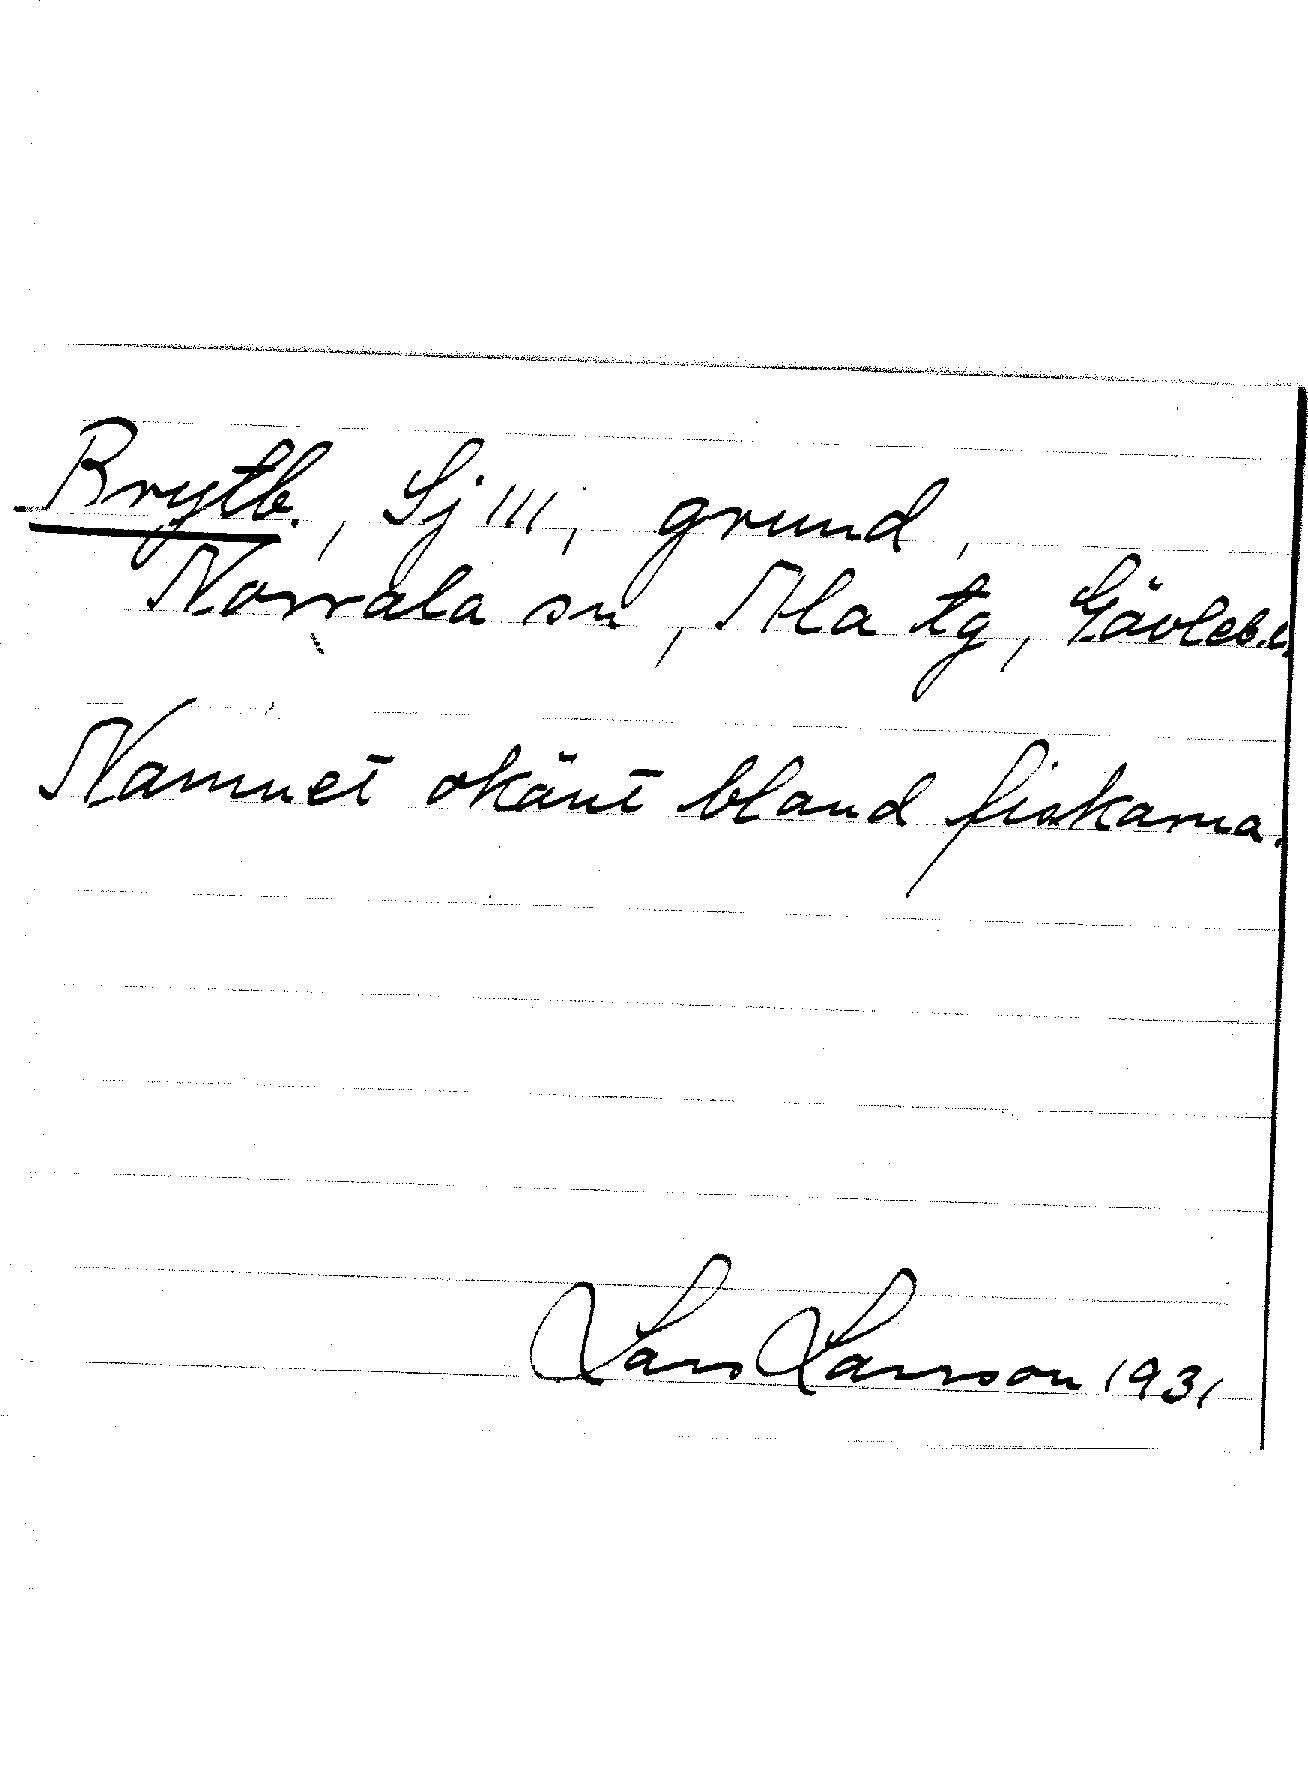 Brytb., Sj 111, grund,
Norrala sn, Ala tg, Gävleb.l.
Namnet okänt bland fiskarna.
Lars Larsson 1931